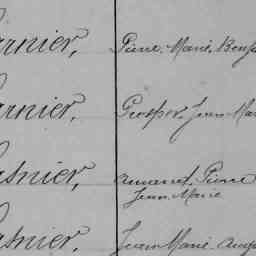 rnier, Pierre Marie
rnier, Prosper Jean Mar
snier, Amand Pierre
Jean Marie
snier, Jean Marie